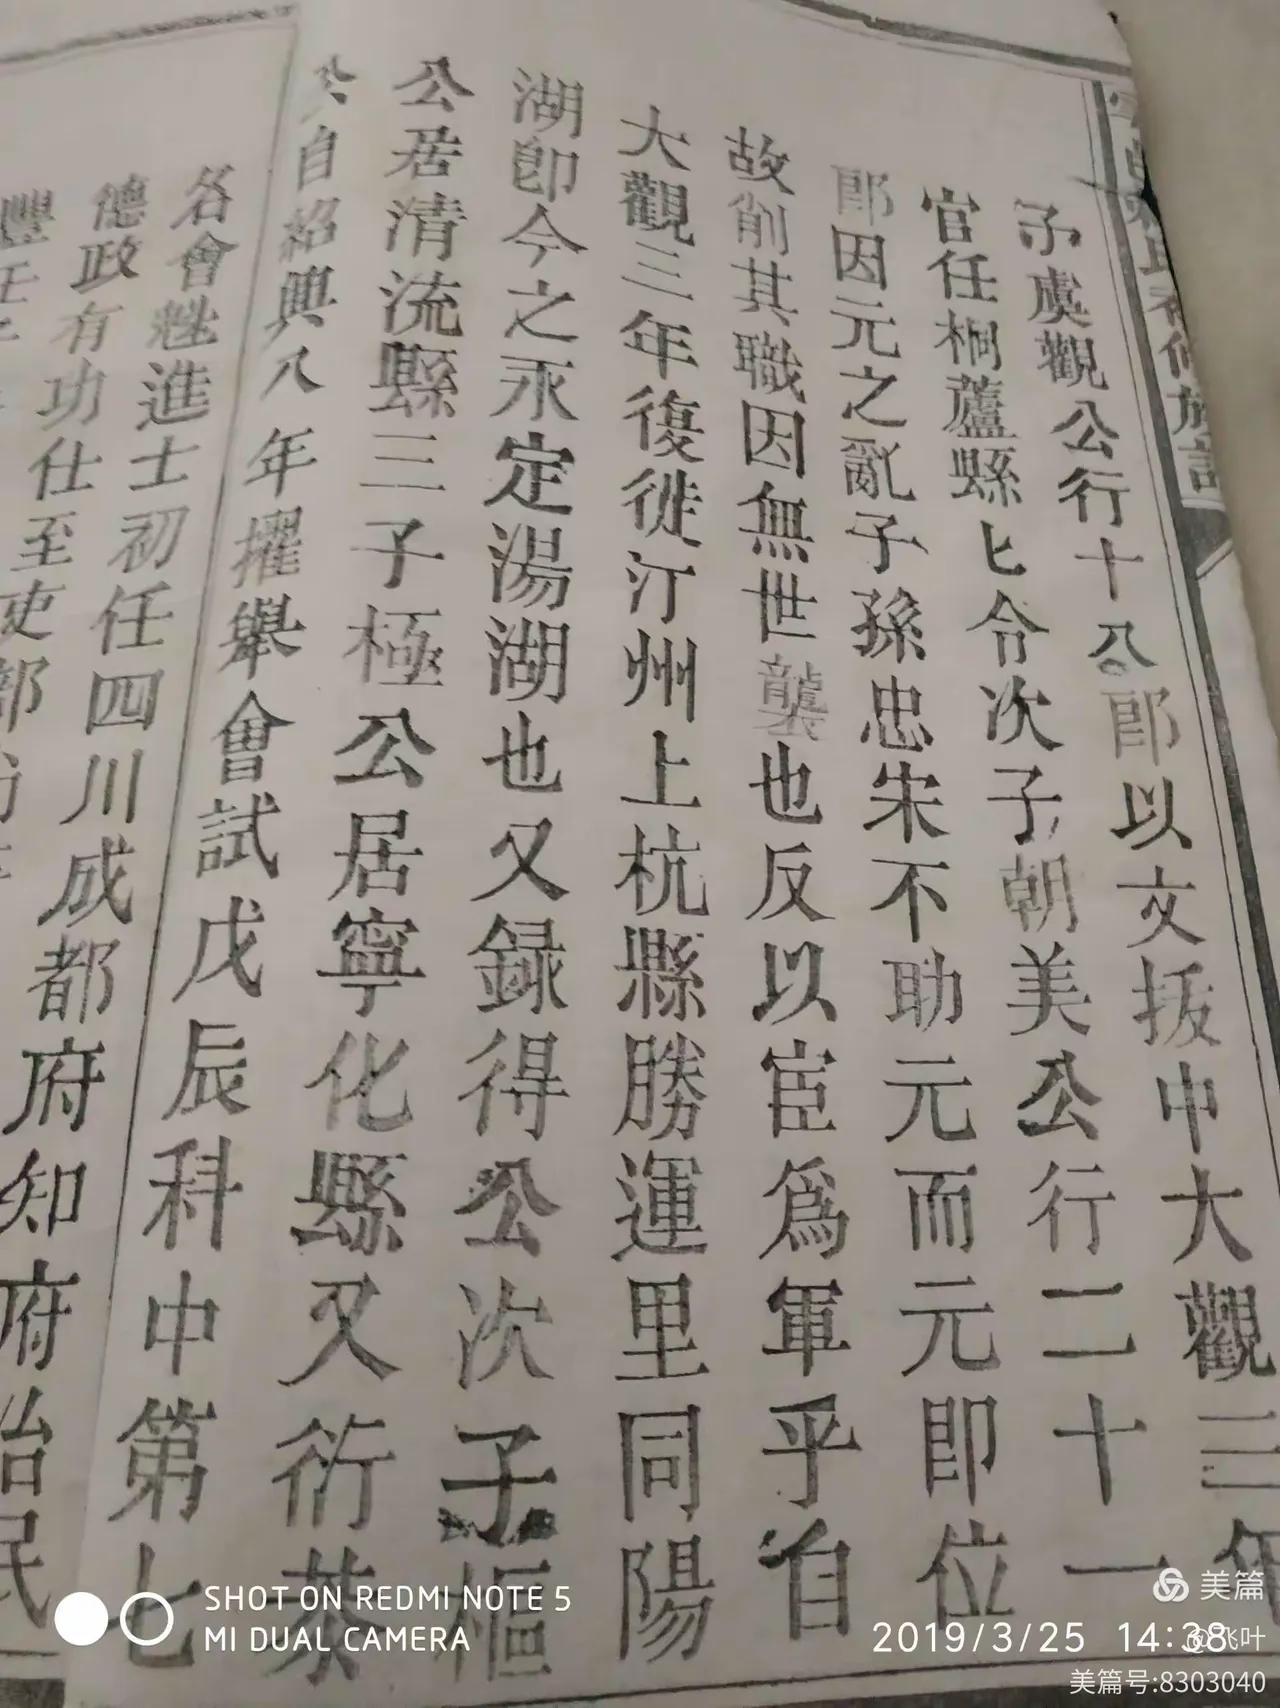 子虞觀公行十八郎以文拔中大觀三年
官任桐蘆縣匕令次子朝美公行二十一
郎因元之亂子孫忠宋不助元而元即位
故削其職因無世襲也反以宦爲軍乎自
大觀三年復徙汀州上杭縣勝運里同陽
湖即今之永定湯湖也又録得公次子樞
公居清流縣三子極公居寧化縣又衍茶
公自紹興八年擢舉會試戊辰科中第七
名會魁進士初任四川成都府知府治民
德政有功仕至吏部尚
豐任
SHOT ON REDMI NOTE 5
MI DUAL CAMERA
2019/3/25 14:38
美篇
@飞叶
美篇号:8303040